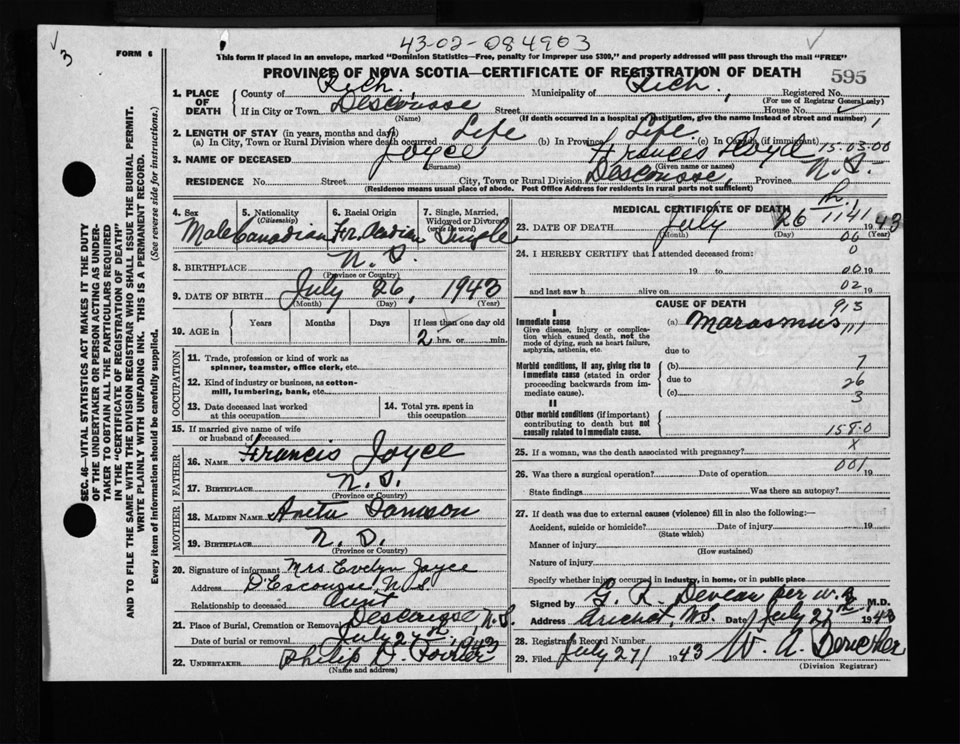 43-02-084903
3
FORM 6
This form if placed in an envelope, marked "Dominion Statistics—Free, penalty for improper use $300," and properly addressed will pass through the mail "FREE"
PROVINCE OF NOVA SCOTIA—CERTIFICATE OF REGISTRATION OF DEATH
595
1. PLACE OF DEATH
County of Rich. Municipality of Rich. Registered No.
(For use of Registrar General only)
If in City or Town Descousse Street House No.
(Name) (If death occurred in a hospital or institution, give the name instead of street and number)
2. LENGTH OF STAY (in years, months and days)
(a) In City, Town or Rural Division where death occurred Life (b) In Province Life (c) In Canada (if immigrant)
15-03-00
3. NAME OF DECEASED Joyce Francis Lloyd
(Surname) (Given name or names)
RESIDENCE No. Street City, Town or Rural Division Descousse, Province N.S.
(Residence means usual place of abode. Post Office Address for residents in rural parts not sufficient)
4. Sex
Male
5. Nationality
(Citizenship)
Canadian
6. Racial Origin
Fr. Acadian
7. Single, Married, Widowed or Divorced
(write the word)
Single
8. BIRTHPLACE N.S.
(Province or Country)
9. DATE OF BIRTH July 26, 1943
(Month) (Day) (Year)
10. AGE in
Years Months Days If less than one day old
2 hrs. or min.
OCCUPATION
11. Trade, profession or kind of work as
spinner, teamster, office clerk, etc.
12. Kind of industry or business, as cotton-
mill, lumbering, bank, etc.
13. Date deceased last worked
at this occupation
14. Total yrs. spent in
this occupation
15. If married give name of wife
or husband of deceased
FATHER
16. Name Francis Joyce
17. BIRTHPLACE N.S.
(Province or Country)
MOTHER
18. MAIDEN NAME Anita
19. BIRTHPLACE N.S.
(Province or Country)
20. Signature of informant Mrs. Evelyn Joyce
Address D'Escousse N.S.
Relationship to deceased Aunt
21. Place of Burial, Cremation or Removal Descousse N.S.
Date of burial or removal July 27th, 1943
22. UNDERTAKER Philip D. Poirier
(Name and address)
MEDICAL CERTIFICATE OF DEATH
23. DATE OF DEATH July 26 1943
1141
(Month) (Day) (Year)
00
24. I HEREBY CERTIFY that I attended deceased from:
0
19 to 19
00
and last saw h alive on 19
02
CAUSE OF DEATH
913
I
Immediate cause
Give disease, injury or complica-
tion which caused death, not the
mode of dying, such as heart failure,
asphyxia, asthenia, etc.
(a) Marasmus
111
due to
Morbid conditions, if any, giving rise to
immediate cause (stated in order
proceeding backwards from im-
mediate cause).
(b)
7
due to
26
(c)
3
II
Other morbid conditions (if important)
contributing to death but not
causally related to immediate cause.
158-0
25. If a woman, was the death associated with pregnancy?
X
26. Was there a surgical operation? Date of operation 19
001
State findings Was there an autopsy?
27. If death was due to external causes (violence) fill in also the following:—
Accident, suicide or homicide? Date of injury 19
(State which)
Manner of injury
(How sustained)
Nature of injury
Specify whether injury occurred in industry, in home, or in public place
Signed by G. R. Deveau per M.D.
Address Arichat, N.S. Date July 27th 1943
28. Registrar's Record Number
29. Filed July 27 1943 W. A.
(Division Registrar)
SEC. 46—VITAL STATISTICS ACT MAKES IT THE DUTY
OF THE UNDERTAKER OR PERSON ACTING AS UNDER-
TAKER TO OBTAIN ALL THE PARTICULARS REQUIRED
IN THE "CERTIFICATE OF REGISTRATION OF DEATH"
AND TO FILE THE SAME WITH THE DIVISION REGISTRAR WHO SHALL ISSUE THE BURIAL PERMIT.
WRITE PLAINLY WITH UNFADING INK. THIS IS A PERMANENT RECORD.
Every item of information should be carefully supplied. (See reverse side for instructions.)